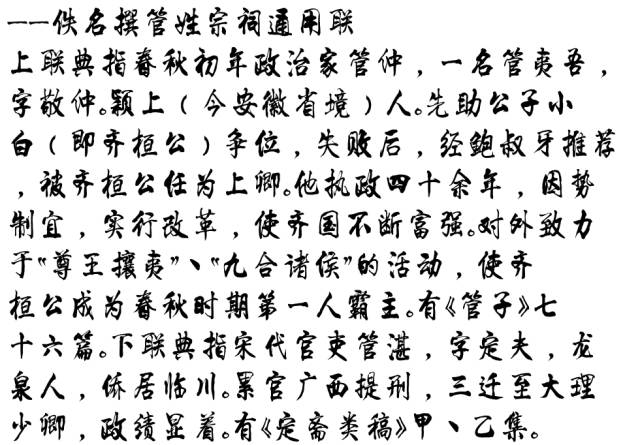 ——佚名撰管姓宗祠通用联
上联典指春秋初年政治家管仲，一名管夷吾，
字敬仲。颖上（今安徽省境）人。先助公子小
白（即齐桓公）争位，失败后，经鲍叔牙推荐
，被齐桓公任为上卿。他执政四十余年，因势
制宜，实行改革，使齐国不断富强。对外致力
于“尊王攘夷”、“九合诸侯”的活动，使齐
桓公成为春秋时期第一人霸主。有《管子》七
十六篇。下联典指宋代官吏管湛，字定夫，龙
泉人，侨居临川。累官广西提刑，三迁至大理
少卿，政绩显着。有《定斋类稿》甲、乙集。